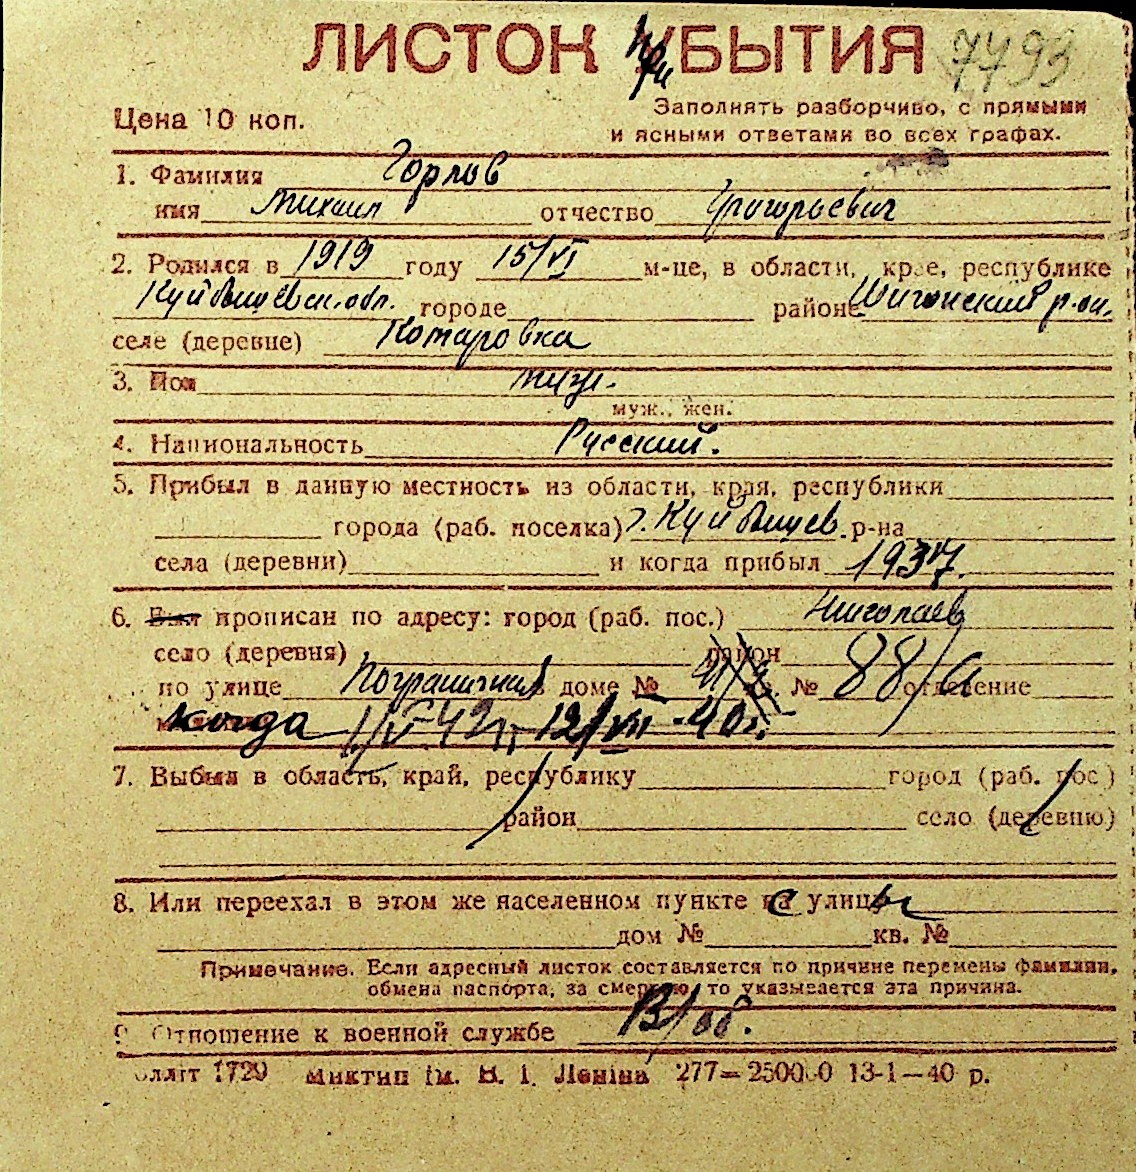 ЛИСТОК УБЫТИЯ При 7493
Цена 10 коп.
Заполнять разборчиво, с прямыми
и ясными ответами во всех графах.
1. Фамилия Горлов
имя Михаил отчество Григорьевич
2. Родился в 1919 году 15/VI м-це, в области, крае, республике
Куйбышевск. обл. городе районе Шигонский р-он,
селе (деревне) Комаровка
3. Пол муж.
муж., жен.
4. Национальность Русский.
5. Прибыл в данную местность из области, края, республики
города (раб. поселка) г. Куйбышев. р-на
села (деревни) и когда прибыл 1937.
6. Был прописан по адресу: город (раб. пос.) Николаев
село (деревня) район
по улице Пограничная в доме № кв. № 88/а отделение
когда 12/VII-40г.
7. Выбыл в область, край, республику город (раб. пос.)
район село (деревню)
8. Или переехал в этом же населенном пункте с улицы
дом № кв. №
Примечание. Если адресный листок составляется по причине перемены фамилии,
обмена паспорта, за смертью, то указывается эта причина.
9. Отношение к военной службе В/об.
1729 Миктип ім. В. І. Леніна 277—250000 13-1—40 р.